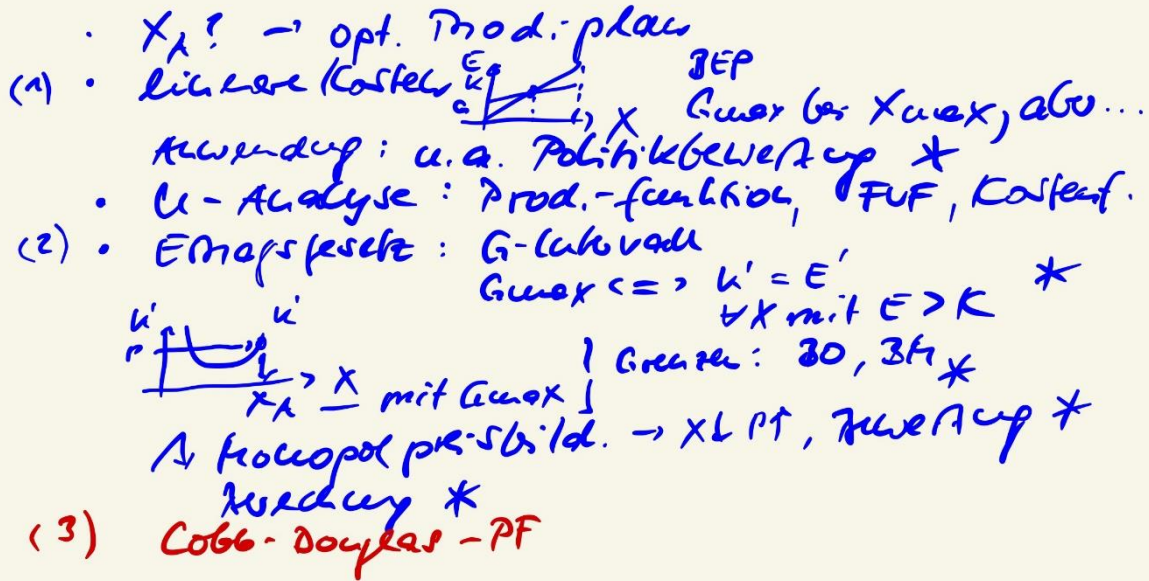 · X_A? → opt. Prod.-plan
(1) · lineare Kosten E K G X BEP
Gmax bei Xmax, abs...
Anwendung: u.a. Politikbewertung *
· U-Analyse: Prod.-funktion, FVF, Kostenf.
(2) · Ertragsgesetz: G-
Gmax <=> K' = E' *
∀X mit E > K
K' P K' X_A X mit Gmax } Grenzen: BO, BM *
Monopolpreisbild. → X↓ P↑, *
*
(3) Cobb-Douglas-PF